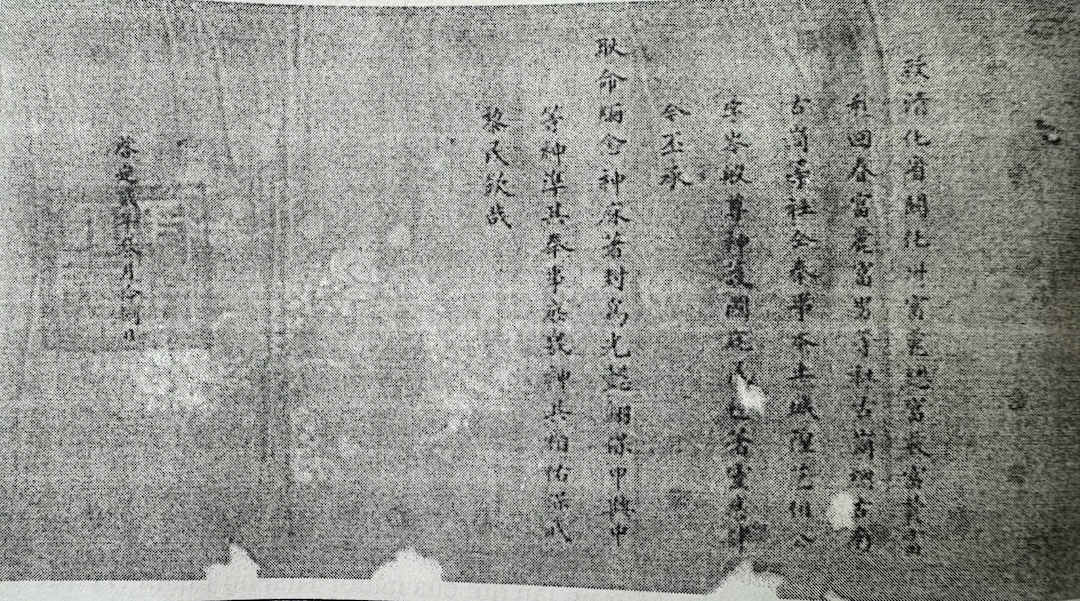 敕清化省關化州富總富長富富
利回春富麓富男等社古崗洞古南
古崗等社仝奉事本土城隍公
岑峻尊神護國庇民稔著靈應肆
今丕承
耿命緬念神庥著封爲光懿翊保中興中
等神準其奉事庶幾神其相佑保我
黎民欽哉
啓定貳年叁月拾捌日